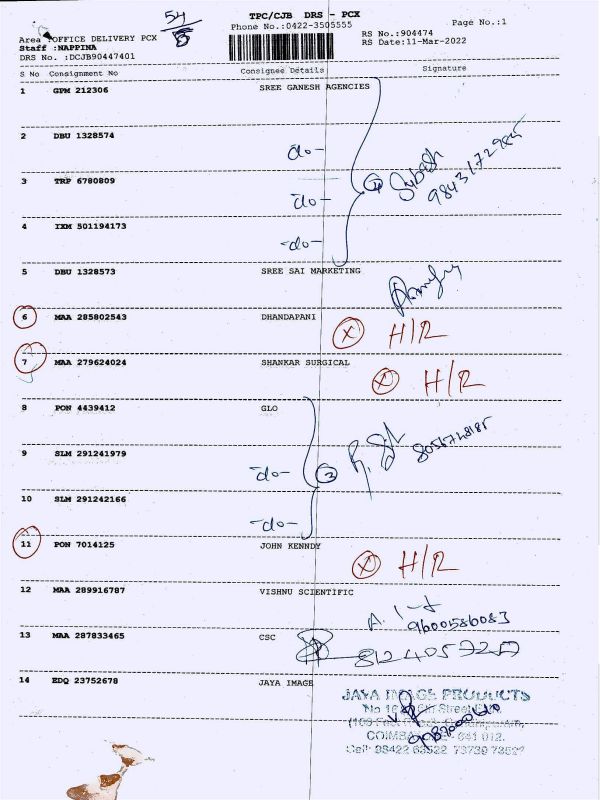 54/8
TPC/CJB DRS - PCX
Phone No.:0422-3505555
Page No.:1
Area :OFFICE DELIVERY PCX
Staff :NAPPINA
DRS No. :DCJB90447401
RS No.:904474
RS Date:11-Mar-2022
S No Consignment No Consignee Details Signature
1 GPM 212306 SREE GANESH AGENCIES
2 DBU 1328574
-do-
3 TRP 6780809
4 Subash
9843172985
-do-
4 IXM 501194173
-do-
5 DBU 1328573 SREE SAI MARKETING
6 MAA 285802543 DHANDAPANI X H/R
7 MAA 279624024 SHANKAR SURGICAL X H/R
8 PON 4439412 GLO
9 SLM 291241979
-do- 3
10 SLM 291242166
-do-
11 PON 7014125 JOHN KENNDY X H/R
12 MAA 289916787 VISHNU SCIENTIFIC
9600586083
13 MAA 287833465 CSC
14 EDQ 23752678 JAYA IMAGE
JAYA IMAGE PRODUCTS
641 012.